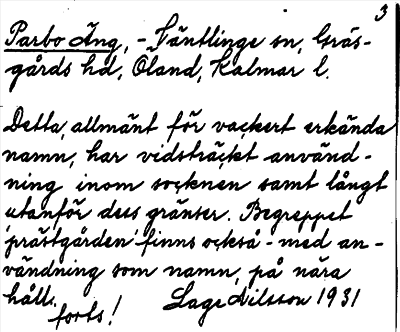 3
Parbo Äng, - Ventlinge sn, Gräs-
gårds hd, Öland, Kalmar l.
Detta, allmänt för vackert erkända
namn, har vidsträckt använd-
ning inom socknen samt långt
utanför dess gränser. Begreppet
'prästgården' finns också - med an-
vändning som namn, på nära
håll.
forts! Lage Nilsson 1931